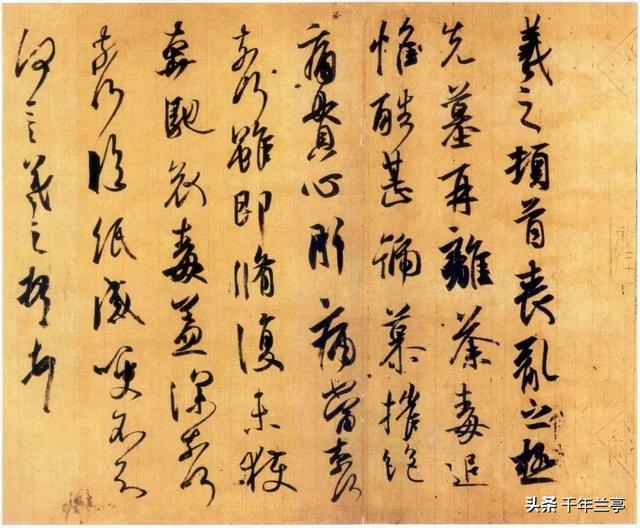 羲之頓首喪亂之極
先墓再離荼毒追
惟酷甚號慕摧絕
痛貫心肝痛當奈何
奈何雖即脩復未獲
奔馳哀毒益深奈何
奈何臨紙感哽不知
何言羲之頓首
头条 千年兰亭